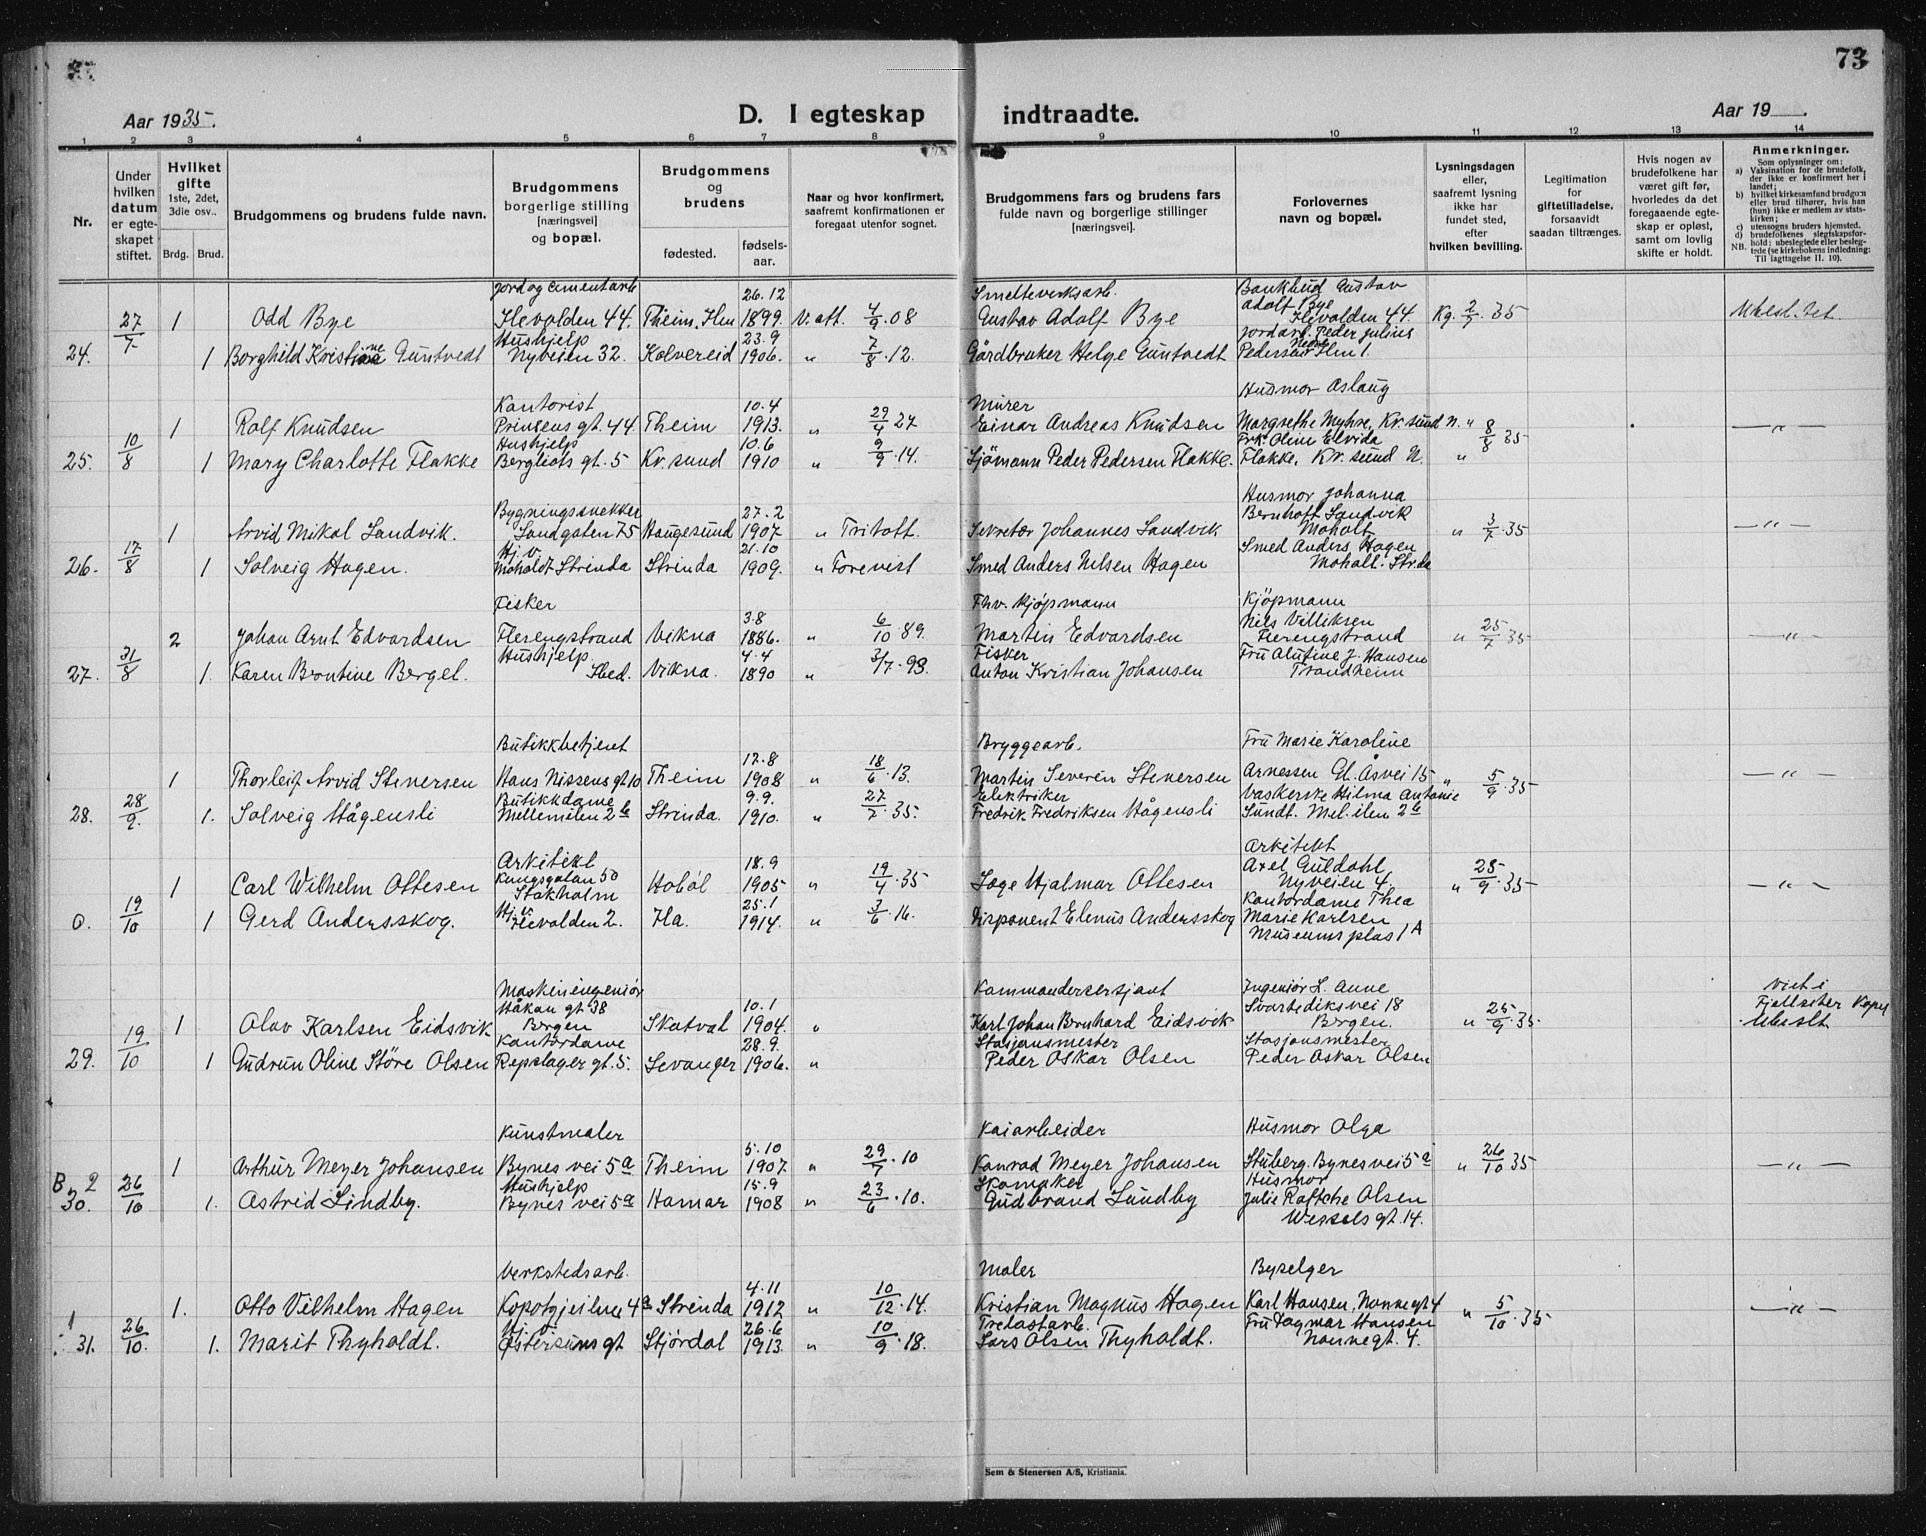 73
Aar 1935.
D. I egteskap indtraadte.
Aar 19 .
1 2 3 4 5 6 7 8 9 10 11 12 13 14
Nr.
Under hvilken datum er egteskapet stiftet.
Hvilket gifte 1ste, 2det, 3die osv..
Brdg. Brud.
Brudgommens og brudens fulde navn.
Brudgommens borgerlige stilling [næringsvei] og bopæl.
Brudgommens og brudens
fødested.
fødsels-aar.
Naar og hvor konfirmert, saafremt konfirmationen er foregaat utenfor sognet.
Brudgommens fars og brudens fars fulde navn og borgerlige stillinger [næringsvei].
Forlovernes navn og bopæl.
Lysningsdagen eller, saafremt lysning ikke har fundet sted, efter hvilken bevilling.
Legitimation for giftetilladelse, forsaavidt saadan tiltrænges.
Hvis nogen av brudefolkene har været gift før, hvorledes da det foregaaende egteskap er opløst, samt om lovlig skifte er holdt.
Anmerkninger.
Som oplysninger om:
a) Vaksination for de brudefolk, der ikke er konfirmert her i landet;
b) hvilket kirkesamfund brudgom eller brud tilhører, hvis han (hun) ikke er medlem av statskirken;
c) utensogns bruders hjemsted.
d) brudefolkenes slegtskapsforhold: ubeslegtede eller beslegtede (se kirkebokens indledning:
NB. Til iagttagelse II. 10).
Jord og cementarb 26.12 Smelteverksarb. Bankbud Gustav
27/7 1 Odd Bye Ilevolden 44. Theim, Ilen 1899. V. att. 4/9 .08 Gustav Adolf Bye Adolf Bye Ilevolden 44. Kg. 2/7 .35 Ubesl. tet.
Hushjelp 23.9 Jordarb. Peder Julius
24. 1 Borghild Kristine Guntvedt Nyveien 32. Kolvereid 1906. " 7/8 .12. Gårdbruker Helge Guntvedt Pedersen Nedre Ilen 1.
Kantorist 10.4 Murer Husmor Aslaug
10/8 1 Rolf Knudsen Prinsens gt. 44 Theim 1913. " 29/4 27 Einar Andreas Knudsen Margrethe Myhre, Kr.sund N. " 8/8 35 — " —
Hushjelp 10.6 Frk. Oline Elvida
25. 1 Mary Charlotte Flakke Bergliots gt. 5 Kr. sund 1910 " 9/9 .14. Sjömann Peder Pedersen Flakke. Flakke, Kr. sund N. "
Bygningssnekker 27.2 Husmor Johanna
17/8 1 Arvid Mikal Sandvik. Sandgaten 75 Haugesund 1907 " Tritatt. Sekretær Johannes Sandvik Bernhoft Sandvik Moholt " 3/7 .35 — " —
Hj. v. 21.10 Smed Anders Hagen
26. 1 Solveig Hagen. Moholdt Strinda Strinda 1909. " Forevist Smed Anders Nilsen Hagen Moholt. Str.da
Fisker 3.8 Fhv. kjøpmann Kjøpmann
31/8 2 Johan Arnt Edvardsen Flerengstrand Vikna 1886. " 6/10 .89. Martin Edvardsen Nils Villiksen Flerengstrand " 25/7 35 — " —
Hushjelp 4.4 Fisker Fru Alutine J. Hansen
27. 1. Karen Brontine Bergel. Sted. Vikna. 1890 " 3/7 .93. Anton Kristian Johansen Trondheim
Butikkbetjent 12.8 Bryggearb. Fru Marie Karoline
28/9. 1 Thorleif Arvid Stenersen Hans Nissens gt 10 Theim 1908 " 18/6 .13. Martin Severin Stenersen Arnessen Gl. Åsvei 15 " 5/9 .35 — " —
Butikkdame 9.9. Elektriker Vaskerske Hilma Antonie
28. 1. Solveig Hågensli Mellemilen 2b Strinda. 1910. " 27/7 .35. Fredrik Fredriksen Hågensli Sundt. Mel. ilen 2b
Arkitekt 18.9 Arkitekt
19/10 1 Carl Wilhelm Ottesen Kungsgatan 50 Stokholm Hobøl 1905 " 19/4 .35 Hjalmar Ottesen Axel Guldahl Nyveien 4. " 25/9 .35 — " —
Hj. v. 25.1 Kontordame Thea
0. 1 Gerd Andersskog. Ilevolden 2. Ila. 1914. " 3/6 .16. Disponent Elenus Andersskog Marie Karlsen Museumsplas 1A
Maskiningeniør 10.1 Kommandersersjant Ingeniør L. Anne Viet i
19/10 1 Olav Karlsen Eidsvik Håkon gt. 38 Bergen Skatval 1904. " Karl Johan Bernhard Eidsvik Svartediksvei 18 Bergen. " 25/9 .35. Fjellseter Kapel Ubeslt
Kontordame 28.9. Stasjonsmester Stasjonsmester
29. 1 Gudrun Oline Störe Olsen Repslager gt. 5. Levanger 1906. " Peder Oskar Olsen Peder Oskar Olsen
Kunstmaler 5.10 Kaiarbeider Husmor Olga
B. 2 26/10 1 Arthur Meyer Johansen Bynes vei 5a Theim 1907. " 29/7 .10 Konrad Meyer Johansen Stuberg. Bynesvei 5a " 26/10 35 — " —
Hushjelp 15.9 Skomaker Husmor
30. 1. Astrid Lindby. Bynes vei 5a Hamar 1908 " 23/6 .10. Gudbrand Lundby Julie Olsen
Wessels gt. 14.
Verkstedsarb. 4.11 Maler Byselger
1 26/10. 1. Otto Vilhelm Hagen 4a Strinda 1912 " 10/12 .14. Kristian Magnus Hagen Karl Hansen, Nonnegt 4 " 5/10 .35 — " —
Hj. v. 26.6 Trelastarb. Fru Dagmar Hansen
31. 1. Marit Thyholdt. Østersunsgt Stjördal 1913. " 10/9 .18. Lars Olsen Thyholdt. Nonnegt. 4.
Sem & Stenersen A/S, Kristiania.